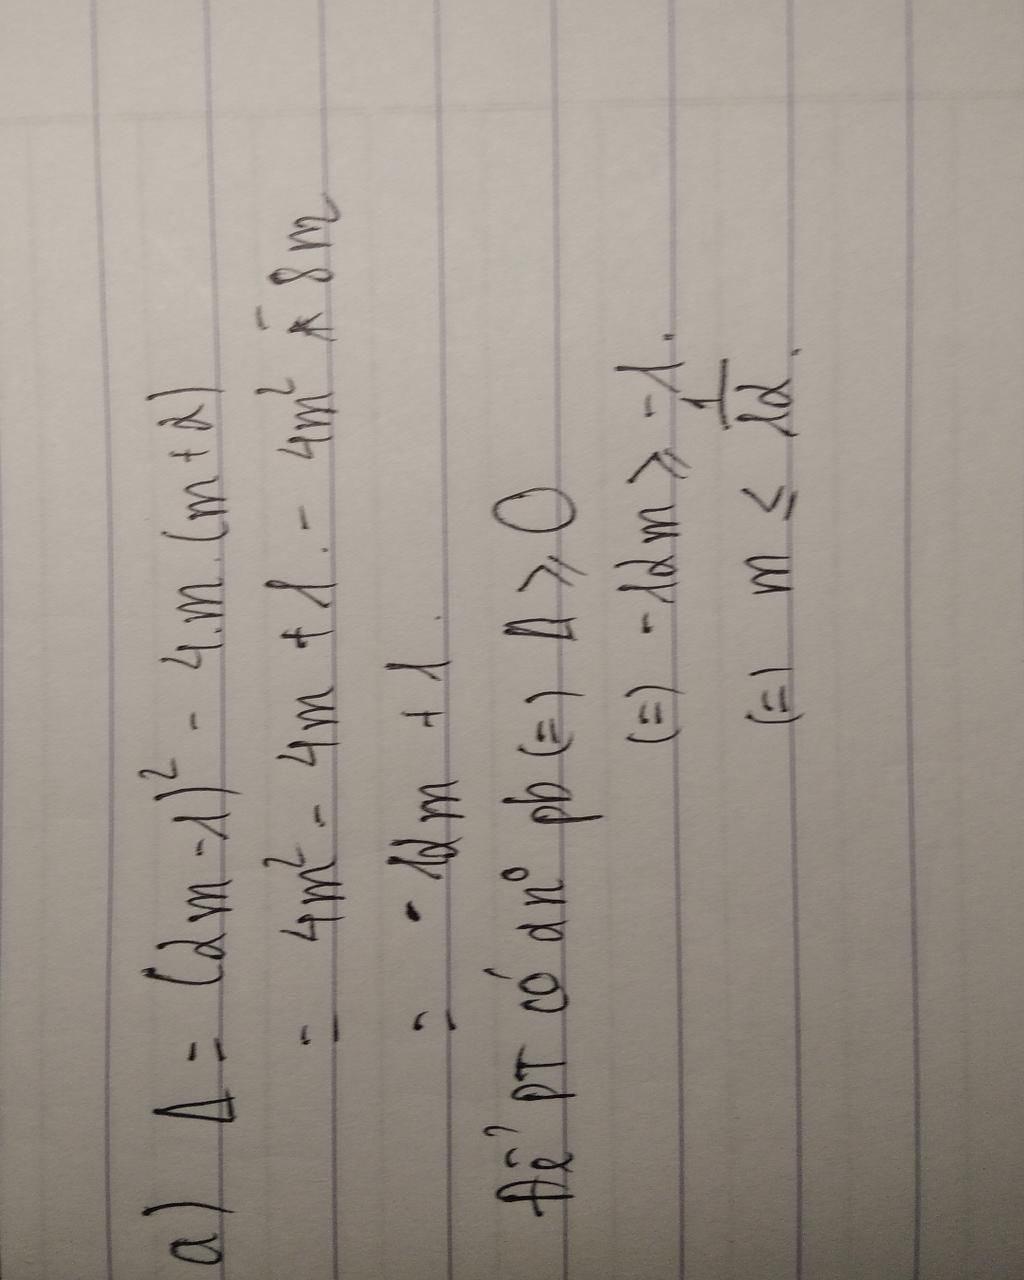 a) Δ = (2m - 1)² - 4.m.(m + 2)
= 4m² - 4m + 1. - 4m² - 8m
= - 12m + 1.
Để PT có 2n° pb (=) Δ ≥ 0
(=) - 12m ≥ - 1.
(=) m ≤ 1/12.